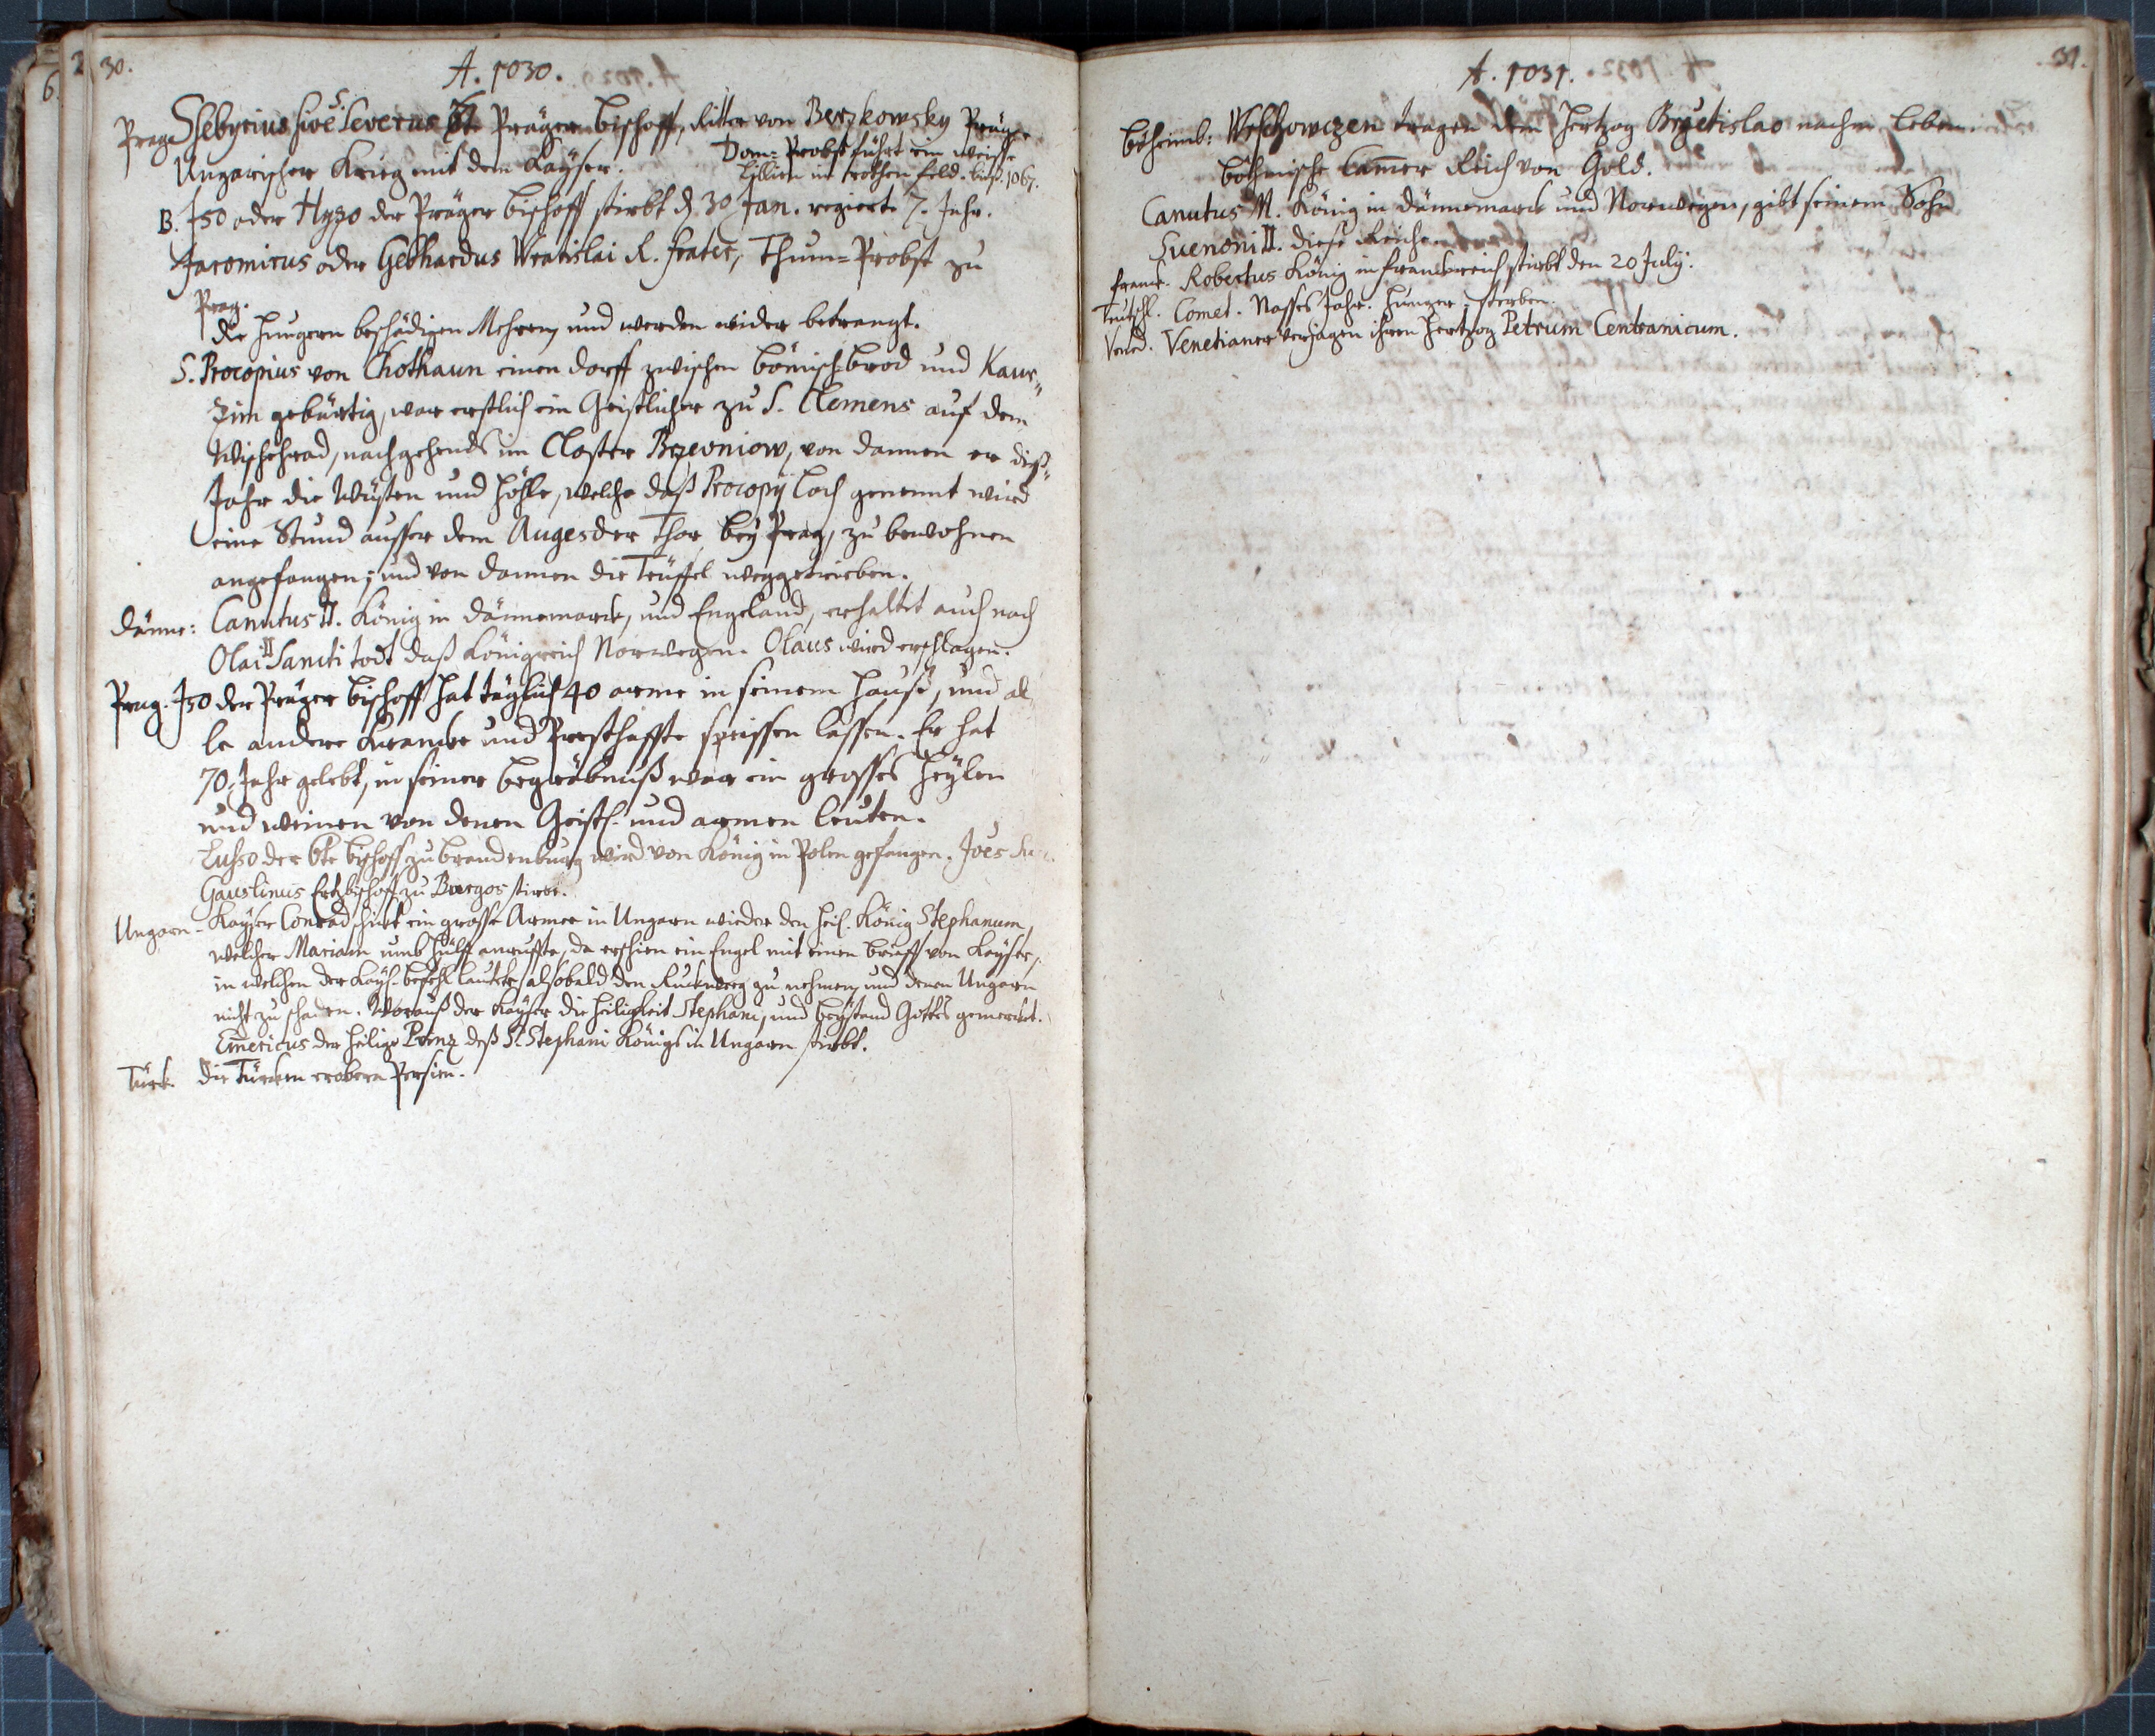 30.
A. 1030.
Prag. Shebyrius sive Severus 6te Präger Bischoff, Ritter von Berzkowsky Präger
Dom=Probst führt ein weisse
Ungarischer Krieg mit dem Kayser.
Lillien im rothen feld. 1067.
B. Izo oder Hyzo der Präger Bischoff stirbt d. 30 Jan. regiert 7. Jahr.
Jaromirus oder Gebhardus Wratislai R. frater, Thum=Probst zu
Prag.
Die Hungern beschädigen Mehren, und werden wider betrangt.
S. Procopius von Chothaun einen dorff zwischen Bömischbrod und Kaur=
zim gebürtig, war erstlich ein Geistlicher zu S. Clemens auf dem
Wischehrad, nachgehends im Closter Brzewniow, von dannen er diß
Jahr die Wüsten und Höhle, welche daß Procopij Loch genennt wird
eine Stund ausser dem Augezder Thor bey Prag, zu bewohnen
angefangen, und von dannen die Teüffel weggetrieben.
Dänne: Canutus II. König in Dännemarck, und Engeland, erhaltet auch nach
Olai II Sancti todt daß Königreich Norwegen. Olaus wird erschlagen.
Prag. Izo der Präger Bischoff hat täglich 40 arme in seinem Hause, und al
le andere Krancke und Presthaffte speissen lassen. Er hat
70. Jahr gelebt, in seiner Begräbnuß war ein grosses Heylen
und weinen von denen Geistl. und armen Leuten.
Luizo der 6te Bischoff zu Brandenburg wird von König in Polen gefangen.
Gauslinus Ertzbischoff zu Burgos stirbt.
Ungarn. Kayser Conrad schickt ein grosse Armee in Ungarn wieder den Heil. König Stephanum,
welcher Mariam umb Hülff anruffte, da erschien ein Engel mit einen brieff von Kayser,
in welchen der Kays. befehl lautete alsobald den Ruckweeg zu nehmen, und denen Ungarn
nicht zu schaden. Worauß der Kayser die Heiligkeit Stephani, und beystand Gottes gemerckt.
Emericus der Heilige Prinz deß S. Stephani Königs in Ungarn stirbt.
Türck. Die Türcken erobern Persien.
31.
A. 1031.
Böheimb: Wrschowczen tragen dem Hertzog Brzetislao nachm Leben.
Böhmische Cammer Reich von Gold.
Canutus M. König in Dännemarck und Norwegen, gibt seinem Sohn
Suenoni II. diese Reiche.
Franck. Robertus König in Franckreich stirbt den 20 July.
Teutschl. Comet. Nasses Jahr. Hunger, sterben.
Vened. Venetianer verjagen ihren Hertzog Petrum Centranicum.